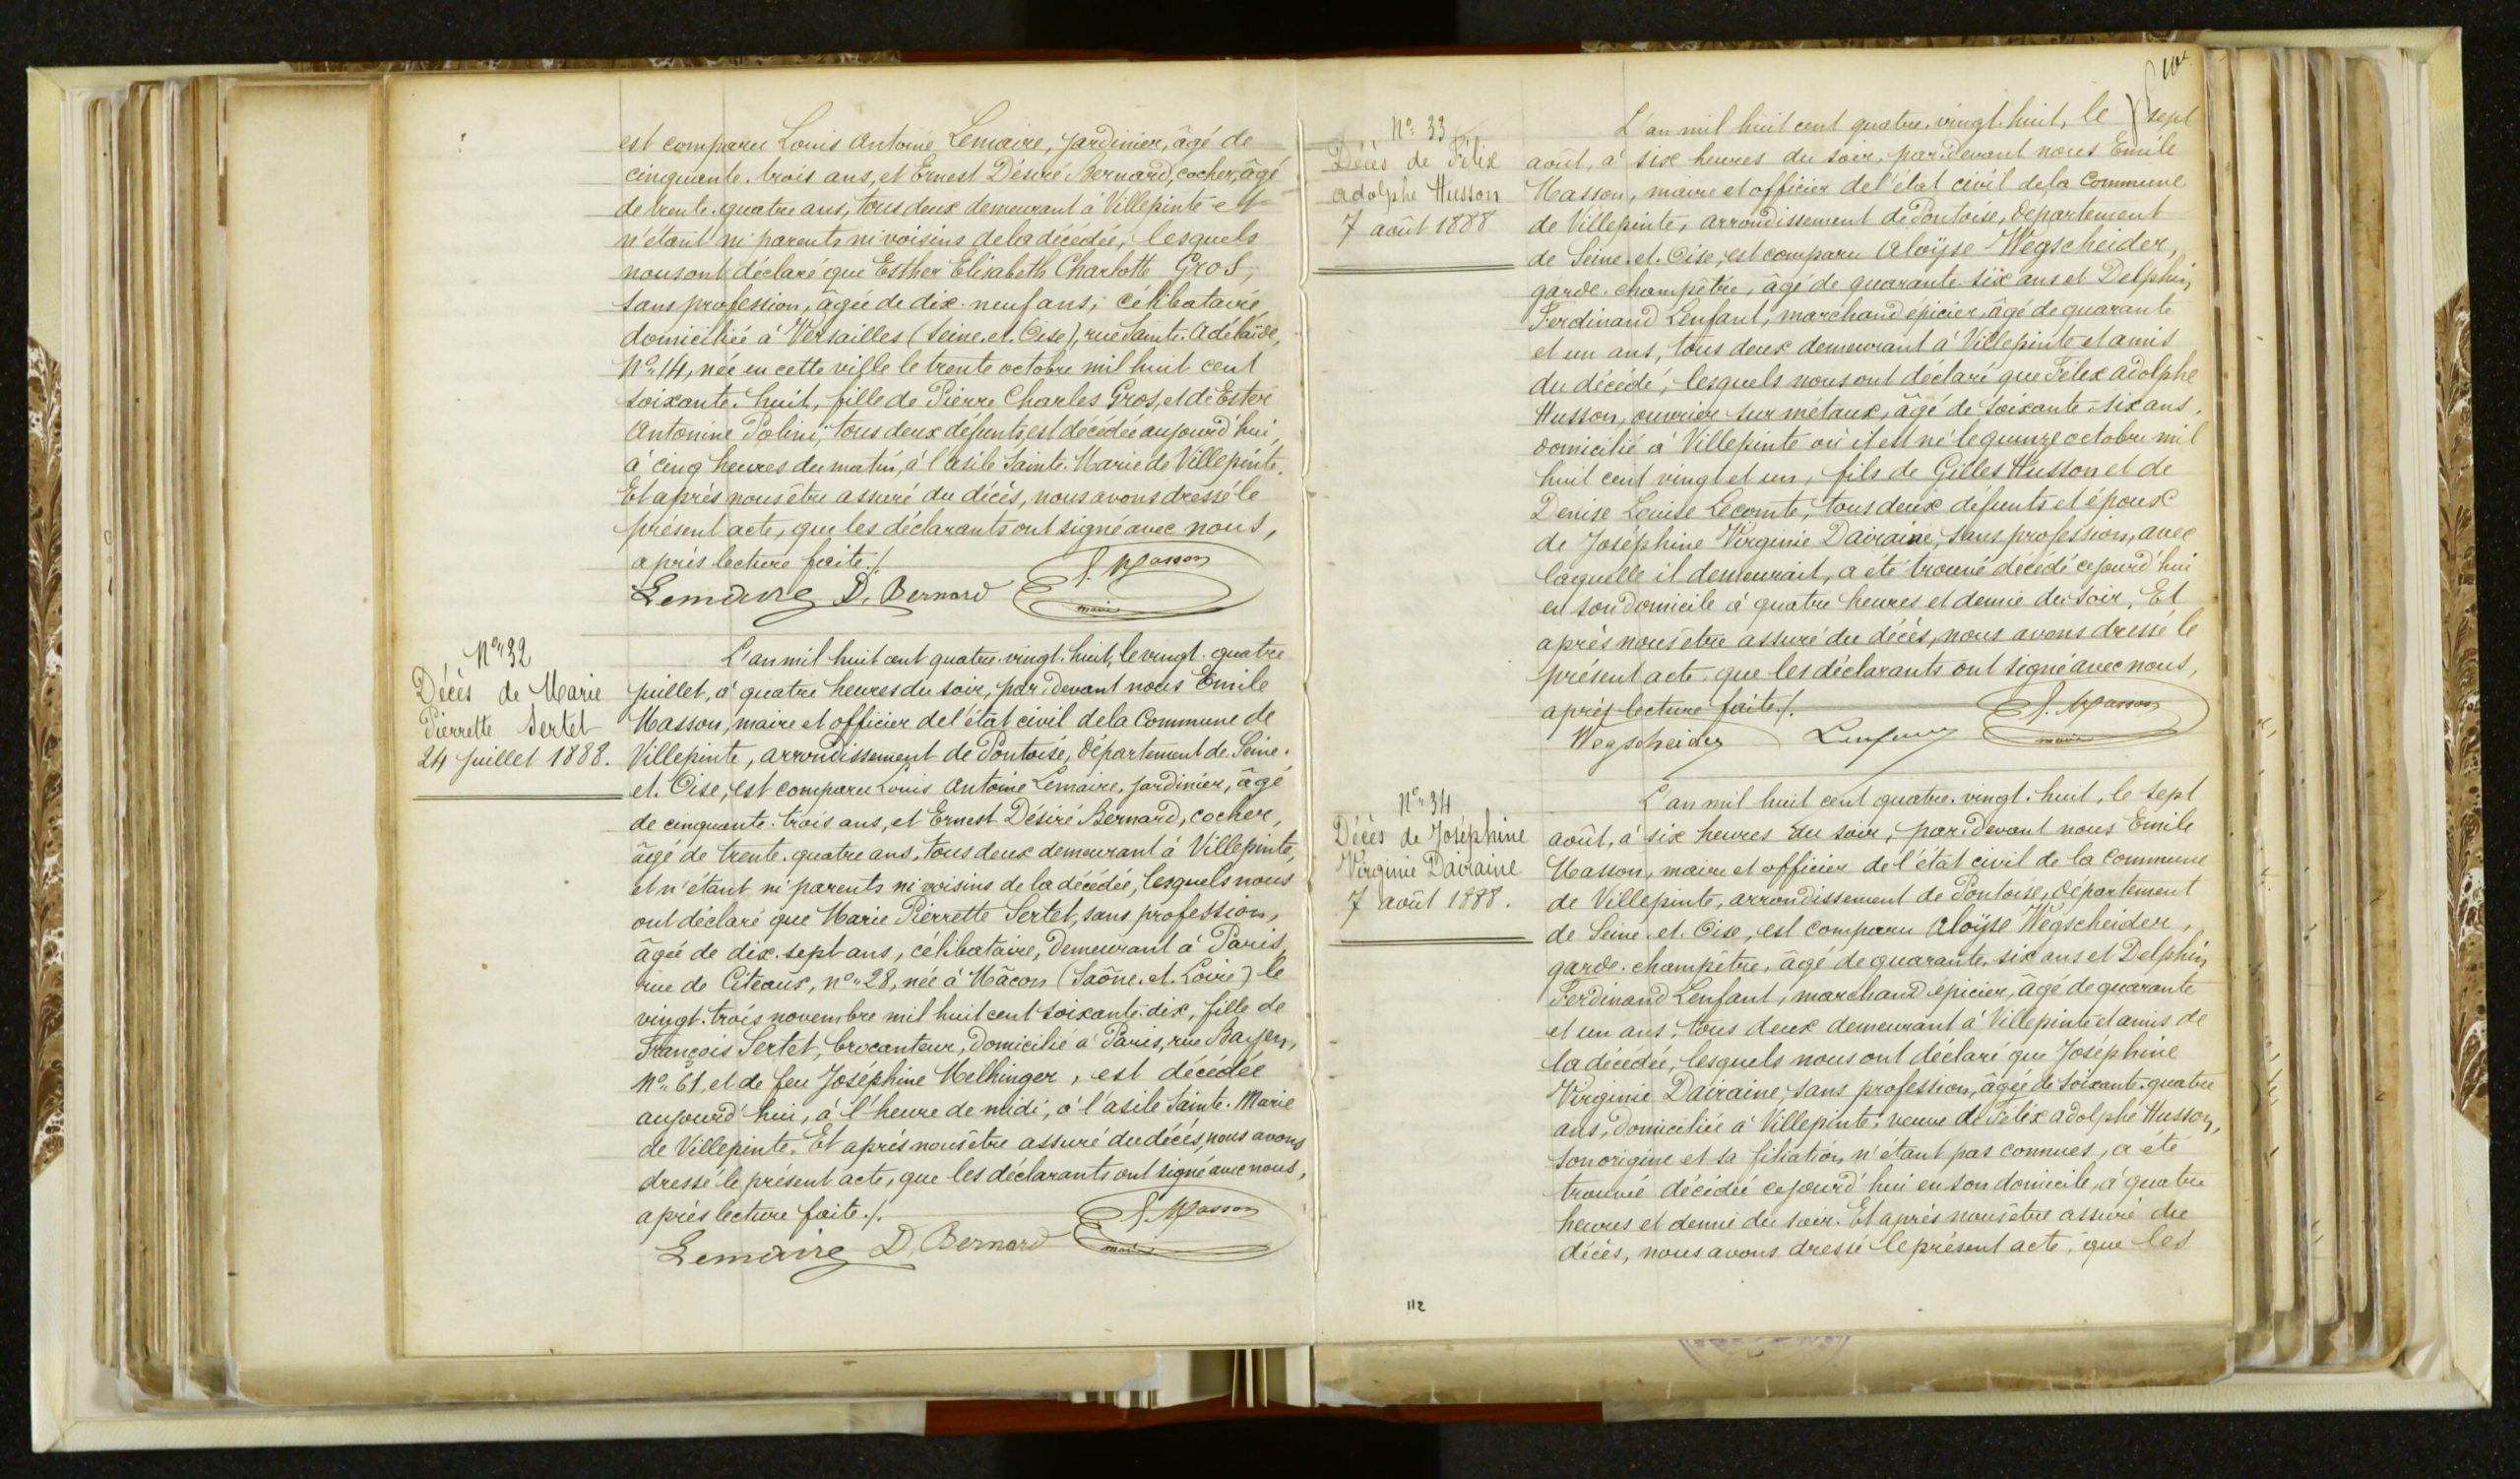 est comparu Louis Antoine Lemaire, jardinier, âgé de
cinquante-trois ans, et Ernest Désiré Bernard, cocher, âgé
de trente-quatre ans, tous deux demeurant à Villepinte et
n'étant ni parents ni voisins de la décédée, lesquels
nous ont déclaré que Esther Elisabeth Charlotte Gros,
sans profession, âgée de dix-neuf ans, célibataire,
domiciliée à Versailles (Seine-et-Oise), rue Sainte-Adélaïde,
N° 14, née en cette ville le trente octobre mil huit cent
soixante-huit, fille de Pierre Charles Gros, et de Ester
Antonine Polini, tous deux défunts, est décédée aujourd'hui,
à cinq heures du matin, à l'asile Sainte-Marie de Villepinte.
Et après nous être assuré du décès, nous avons dressé le
présent acte, que les déclarants ont signé avec nous,
après lecture faite./.
Lemaire D. Bernard E. Masson
maire
N° 32
Décès de Marie
Pierrette Sertet
24 juillet 1888.
L'an mil huit cent quatre-vingt-huit, le vingt-quatre
juillet, à quatre heures du soir, par-devant nous Emile
Masson, maire et officier de l'état civil de la Commune de
Villepinte, arrondissement de Pontoise, département de Seine-
et-Oise, est comparu Louis Antoine Lemaire, jardinier, âgé
de cinquante-trois ans, et Ernest Désiré Bernard, cocher,
âgé de trente-quatre ans, tous deux demeurant à Villepinte,
et n'étant ni parents ni voisins de la décédée, lesquels nous
ont déclaré que Marie Pierrette Sertet, sans profession,
âgée de dix-sept ans, célibataire, demeurant à Paris,
rue de Citeaux, n° 28, née à Mâcon (Saône-et-Loire) le
vingt-trois novembre mil huit cent soixante-dix, fille de
François Sertet, brocanteur, domicilié à Paris, rue Bayen,
N° 61, et de feu Joséphine Melhinger, est décédée
aujourd'hui, à l'heure de midi, à l'asile Sainte-Marie
de Villepinte. Et après nous être assuré du décès, nous avons
dressé le présent acte, que les déclarants ont signé avec nous,
après lecture faite./.
Lemaire D. Bernard E. Masson
maire
N° 33
Décès de Félix
Adolphe Husson
7 août 1888
L'an mil huit cent quatre-vingt-huit, le sept
août, à six heures du soir, par-devant nous Emile
Masson, maire et officier de l'état civil de la Commune
de Villepinte, arrondissement de Pontoise, département
de Seine-et-Oise, est comparu Aloÿse Wegscheider,
garde-champêtre, âgé de quarante-six ans et Delphin
Ferdinand Lenfant, marchand épicier, âgé de quarante
et un ans, tous deux demeurant à Villepinte et amis
du décédé, lesquels nous ont déclaré que Félix Adolphe
Husson, ouvrier sur métaux, âgé de soixante-six ans,
domicilié à Villepinte où il est né le quinze octobre mil
huit cent vingt et un, fils de Gilles Husson et de
Denise Louise Lecomte, tous deux défunts et époux
de Joséphine Virginie Dairaine, sans profession, avec
laquelle il demeurait, a été trouvé décédé cejourd'hui
en son domicile à quatre heures et demie du soir. Et
après nous être assuré du décès, nous avons dressé le
présent acte, que les déclarants ont signé avec nous,
après lecture faite./.
Wegscheider Lenfant E. Masson
maire
N° 34
Décès de Joséphine
Virginie Dairaine
7 août 1888.
L'an mil huit cent quatre-vingt-huit, le sept
août, à six heures du soir, par-devant nous Emile
Masson, maire et officier de l'état civil de la Commune
de Villepinte, arrondissement de Pontoise, département
de Seine-et-Oise, est comparu Aloÿse Wegscheider,
garde-champêtre, âgé de quarante-six ans et Delphin
Ferdinand Lenfant, marchand épicier, âgé de quarante
et un ans, tous deux demeurant à Villepinte et amis de
la décédée, lesquels nous ont déclaré que Joséphine
Virginie Dairaine, sans profession, âgée de soixante-quatre
ans, domiciliée à Villepinte, veuve de Félix Adolphe Husson,
son origine et sa filiation n'étant pas connues, a été
trouvée décédée cejourd'hui en son domicile, à quatre
heures et demie du soir. Et après nous être assuré du
décès, nous avons dressé le présent acte, que les
112